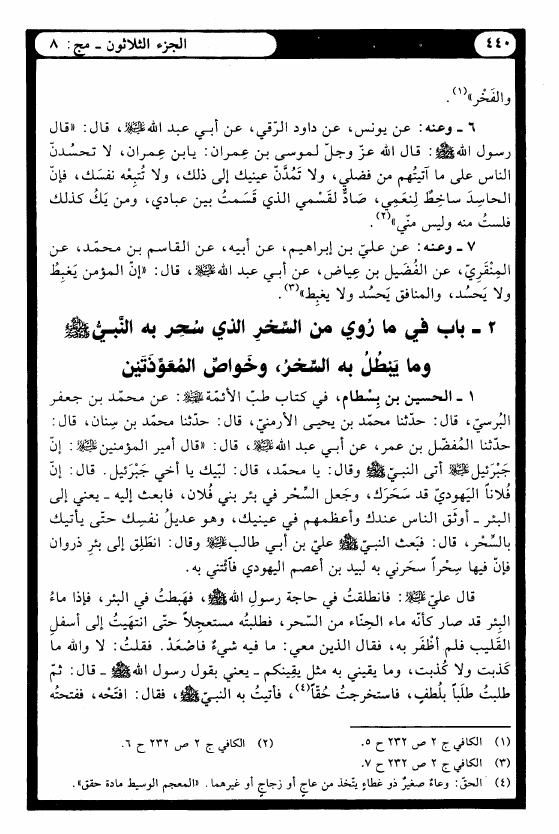 ٤٤٠
الجزء الثلاثون ـ مج: ٨
والفَخْر»(١).
٦ ـ وعنه: عن يونس، عن داود الرّقي، عن أبي عبد الله عليه السلام، قال: «قال
رسول الله ﷺ: قال الله عزّ وجلّ لموسى بن عِمران: يابن عِمران، لا تحسُدنّ
الناس على ما آتيتُهم من فضلي، ولا تَمُدَّنّ عينيك إلى ذلك، ولا تُتبِعْه نفسَك، فإنّ
الحاسِدَ ساخِطٌ لِنعَمِي، صَادٌّ لقَسْمي الذي قَسَمتُ بين عبادي، ومن يَكُ كذلك
فلستُ منه وليس منّي»(٢).
٧ ـ وعنه: عن عليّ بن إبراهيم، عن أبيه، عن القاسم بن محمّد، عن
المِنْقَريّ، عن الفُضَيل بن عِياض، عن أبي عبد الله عليه السلام، قال: «إنّ المؤمن يَغبِطُ
ولا يَحسُد، والمنافق يَحسُد ولا يغبِط»(٣).
٢ ـ باب في ما رُوي من السِّحْرِ الذي سُحِر به النَّبيُّ ﷺ
وما يَبْطُلُ به السِّحْرُ، وخَواصِّ المُعَوِّذَتَيْن
١ ـ الحسين بن بِسْطام، في كتاب طبّ الأئمّة عليهم السلام: عن محمّد بن جعفر
البُرسيّ، قال: حدّثنا محمّد بن يحيى الأرمنيّ، قال: حدّثنا محمّد بن سِنان، قال:
حدّثنا المُفضّل بن عمر، عن أبي عبد الله عليه السلام، قال: «قال أمير المؤمنين عليه السلام: إنّ
جَبْرَئيل عليه السلام أتى النبيّ ﷺ وقال: يا محمّد، قال: لبّيك يا أخي جَبْرَئيل. قال: إنّ
فُلاناً اليَهوديّ قد سَحَرَك، وجَعل السِّحْر في بئر بني فُلان، فابعث إليه ـ يعني إلى
البئر ـ أوثَق الناس عندك وأعظمهم في عينيك، وهو عديلُ نفسِك حتّى يأتيك
بالسِّحْر، قال: فبَعث النبيّ ﷺ عليّ بن أبي طالب عليه السلام وقال: انطَلِق إلى بئرِ ذروان
فإنّ فيها سِحْراً سحَرني به لبيد بن أعصم اليهودي فأْتني به.
قال عليّ عليه السلام: فانطلقتُ في حاجة رسول الله ﷺ، فهَبطتُ في البئر، فإذا ماءُ
البِئر قد صار كأنّه ماء الحِنّاء من السّحر، فطلبتُه مستعجلاً حتّى انتهَيتُ إلى أسفلِ
القَليب فلم أظْفَر به، فقال الذين معي: ما فيه شيءٌ فاصْعَدْ. فقلتُ: لا والله ما
كَذبت ولا كُذبت، وما يقيني به مثل يقِينكم ـ يعني بقول رسول الله ﷺ ـ قال: ثمّ
طلبتُ طلَباً بلُطفٍ، فاستخرجتُ حُقّاً(٤)، فأتيتُ به النبيّ ﷺ، فقال: افتَحْه، ففتحتُه
(١) الكافي ج ٢ ص ٢٣٢ ح ٥.
(٢) الكافي ج ٢ ص ٢٣٢ ح ٦.
(٣) الكافي ج ٢ ص ٢٣٢ ح ٧.
(٤) الحقّ: وعاءٌ صغيرٌ ذو غطاءٍ يتّخذ من عاجٍ أو زجاجٍ أو غيرهما. «المعجم الوسيط مادة حقق».